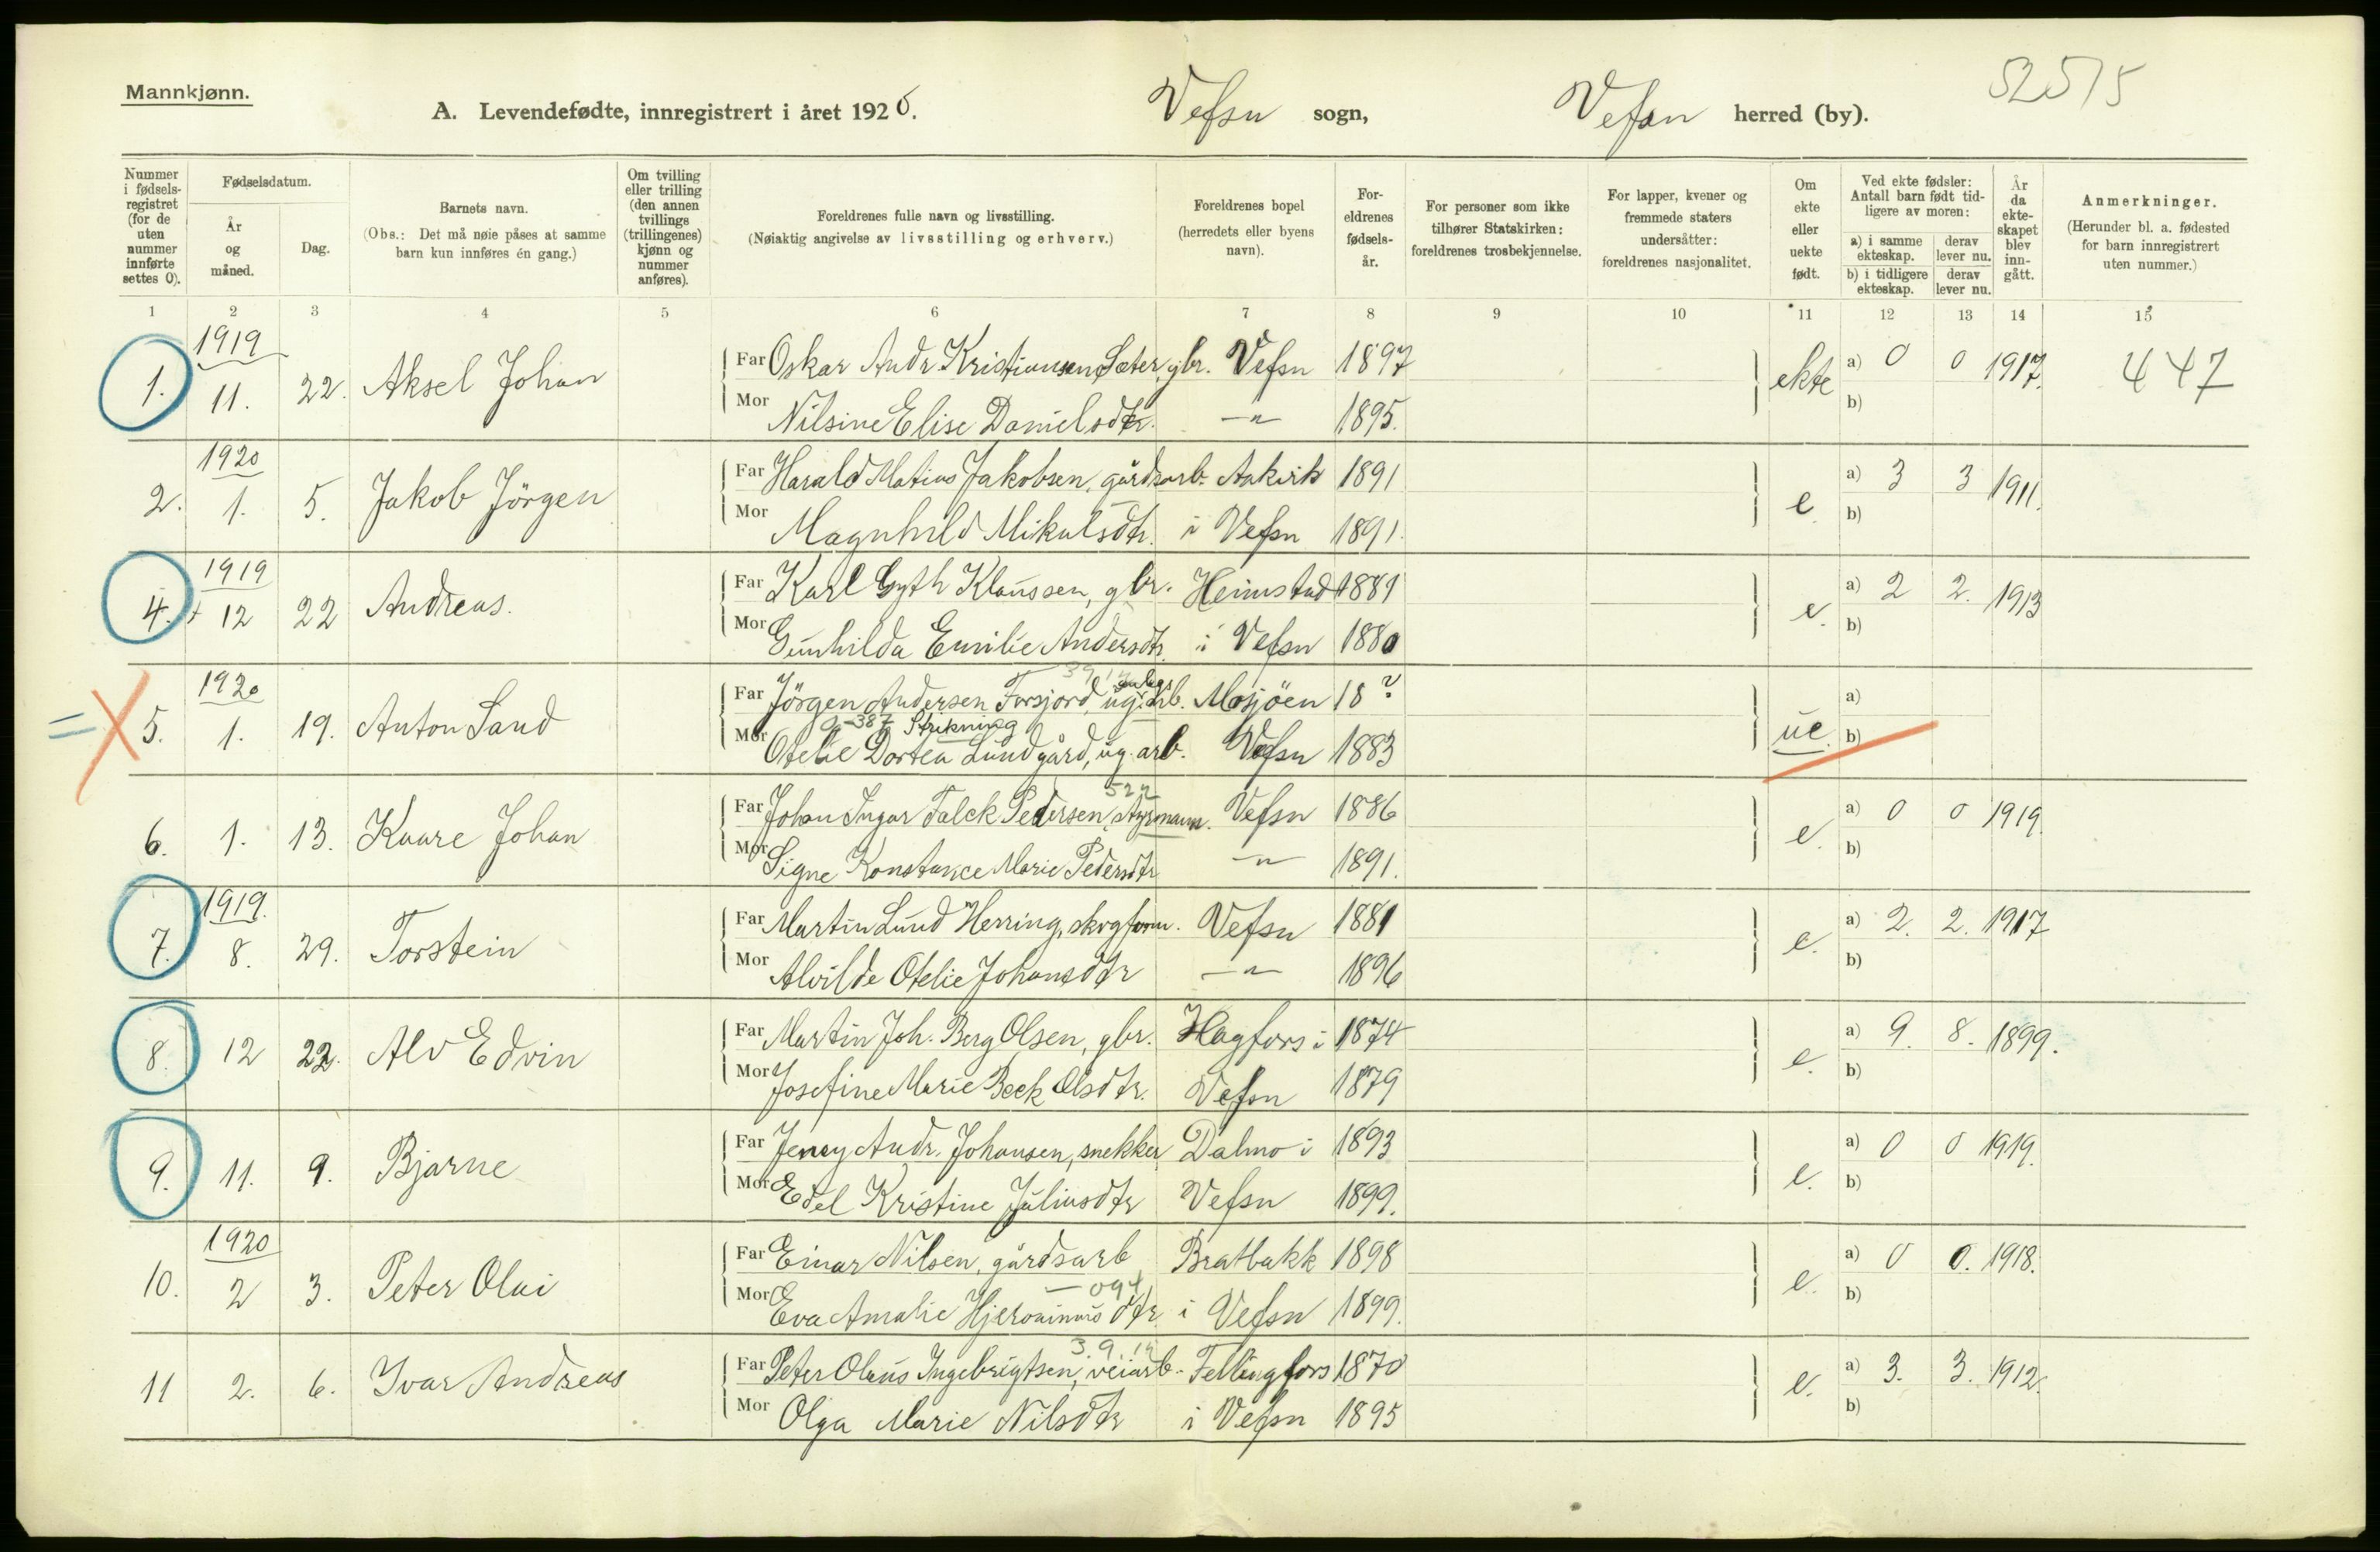 Mannkjønn.
A. Levendefødte, innregistrert i året 1920. Vefsn sogn, Vefsn herred (by). 52515
Nummer i fødselsregistret (for de uten nummer innførte settes 0).
Fødselsdatum.
År og måned.
Dag.
Barnets navn.
(Obs.: Det må nøie påses at samme barn kun innføres én gang.)
Om tvilling eller trilling (den annen tvillings (trillingenes) kjønn og nummer anføres).
Foreldrenes fulle navn og livsstilling.
(Nøiaktig angivelse av livsstilling og erhverv.)
Foreldrenes bopel (herredets eller byens navn).
Foreldrenes fødselsår.
For personer som ikke tilhører Statskirken: foreldrenes trosbekjennelse.
For lapper, kvener og fremmede staters undersåtter: foreldrenes nasjonalitet.
Om ekte eller uekte født.
Ved ekte fødsler: Antall barn født tidligere av moren:
a) i samme ekteskap. derav lever nu.
b) i tidligere ekteskap. derav lever nu.
År da ekteskapet blev inngått.
Anmerkninger.
(Herunder bl. a. fødested for barn innregistrert uten nummer.)
1 2 3 4 5 6 7 8 9 10 11 12 13 14 15
1919
1. 11. 22. Aksel Johan Far Oskar Andr. Kristiansen Sæter, gbr. Vefsn 1897 ekte a) 0 0 1917. 447
Mor Nilsine Elise Danielsdtr. —"— 1895. b)
1920
2. 1. 5. Jakob Jörgen Far Harald Matius Jakobsen, gårdsarb. Aakvik 1891 e a) 3 3 1911.
Mor Magnhild Mikalsdtr. i Vefsn 1891. b)
1919
4. 12 22 Andreas. Far Karl Gyth Klaussen, gbr. Heimstad 1881 e. a) 2 2. 1913
Mor Gunhilda Emilie Andersdtr. i Vefsn 1880 b)
1920
= X 5. 1. 19. Anton Sand Far Jörgen Andersen Forsjord, ug. arb. Mosjöen 18 ? ue. a)
Strikning
Mor Otelie Dortea Lundgård, ug. arb. Vefsn 1883 b)
522
6. 1. 13. Kaare Johan Far Johan Ingar Falck Pedersen, styrmann. Vefsn 1886 e. a) 0 0 1919
Mor Signe Konstance Marie Pedersdtr —"— 1891. b)
1919.
7. 8. 29. Torstein Far Martin Lund Herring, skogform. Vefsn 1881 e. a) 2. 2. 1917
Mor Alvilde Otelie Johansdtr —"— 1896 b)
8. 12 22. Alv Edvin Far Martin Joh. Berg Olsen, gbr. Hagfors i 1874 e. a) 9. 8. 1899.
Mor Josefine Marie Beck Olsdtr. Vefsn 1879 b)
9. 11. 9. Bjarne Far Jenny Andr. Johansen, snekker Dalmo i 1893 e. a) 0 0 1919.
Mor Edel Kristine Juliusdtr Vefsn 1899. b)
1920
10. 2 3. Peter Olai Far Einar Nilsen, gårdsarb Bratbakk 1898 e. a) 0 0. 1918.
— 094
Mor Eva Amalie Hjeronimusdtr. i Vefsn 1899. b)
11 2. 6. Ivar Andreas Far Peter Olaus Ingebrigtsen, veiarb. Fellingfors 1870 e. a) 3. 3. 1912.
Mor Olga Marie Nilsdtr i Vefsn 1895 b)